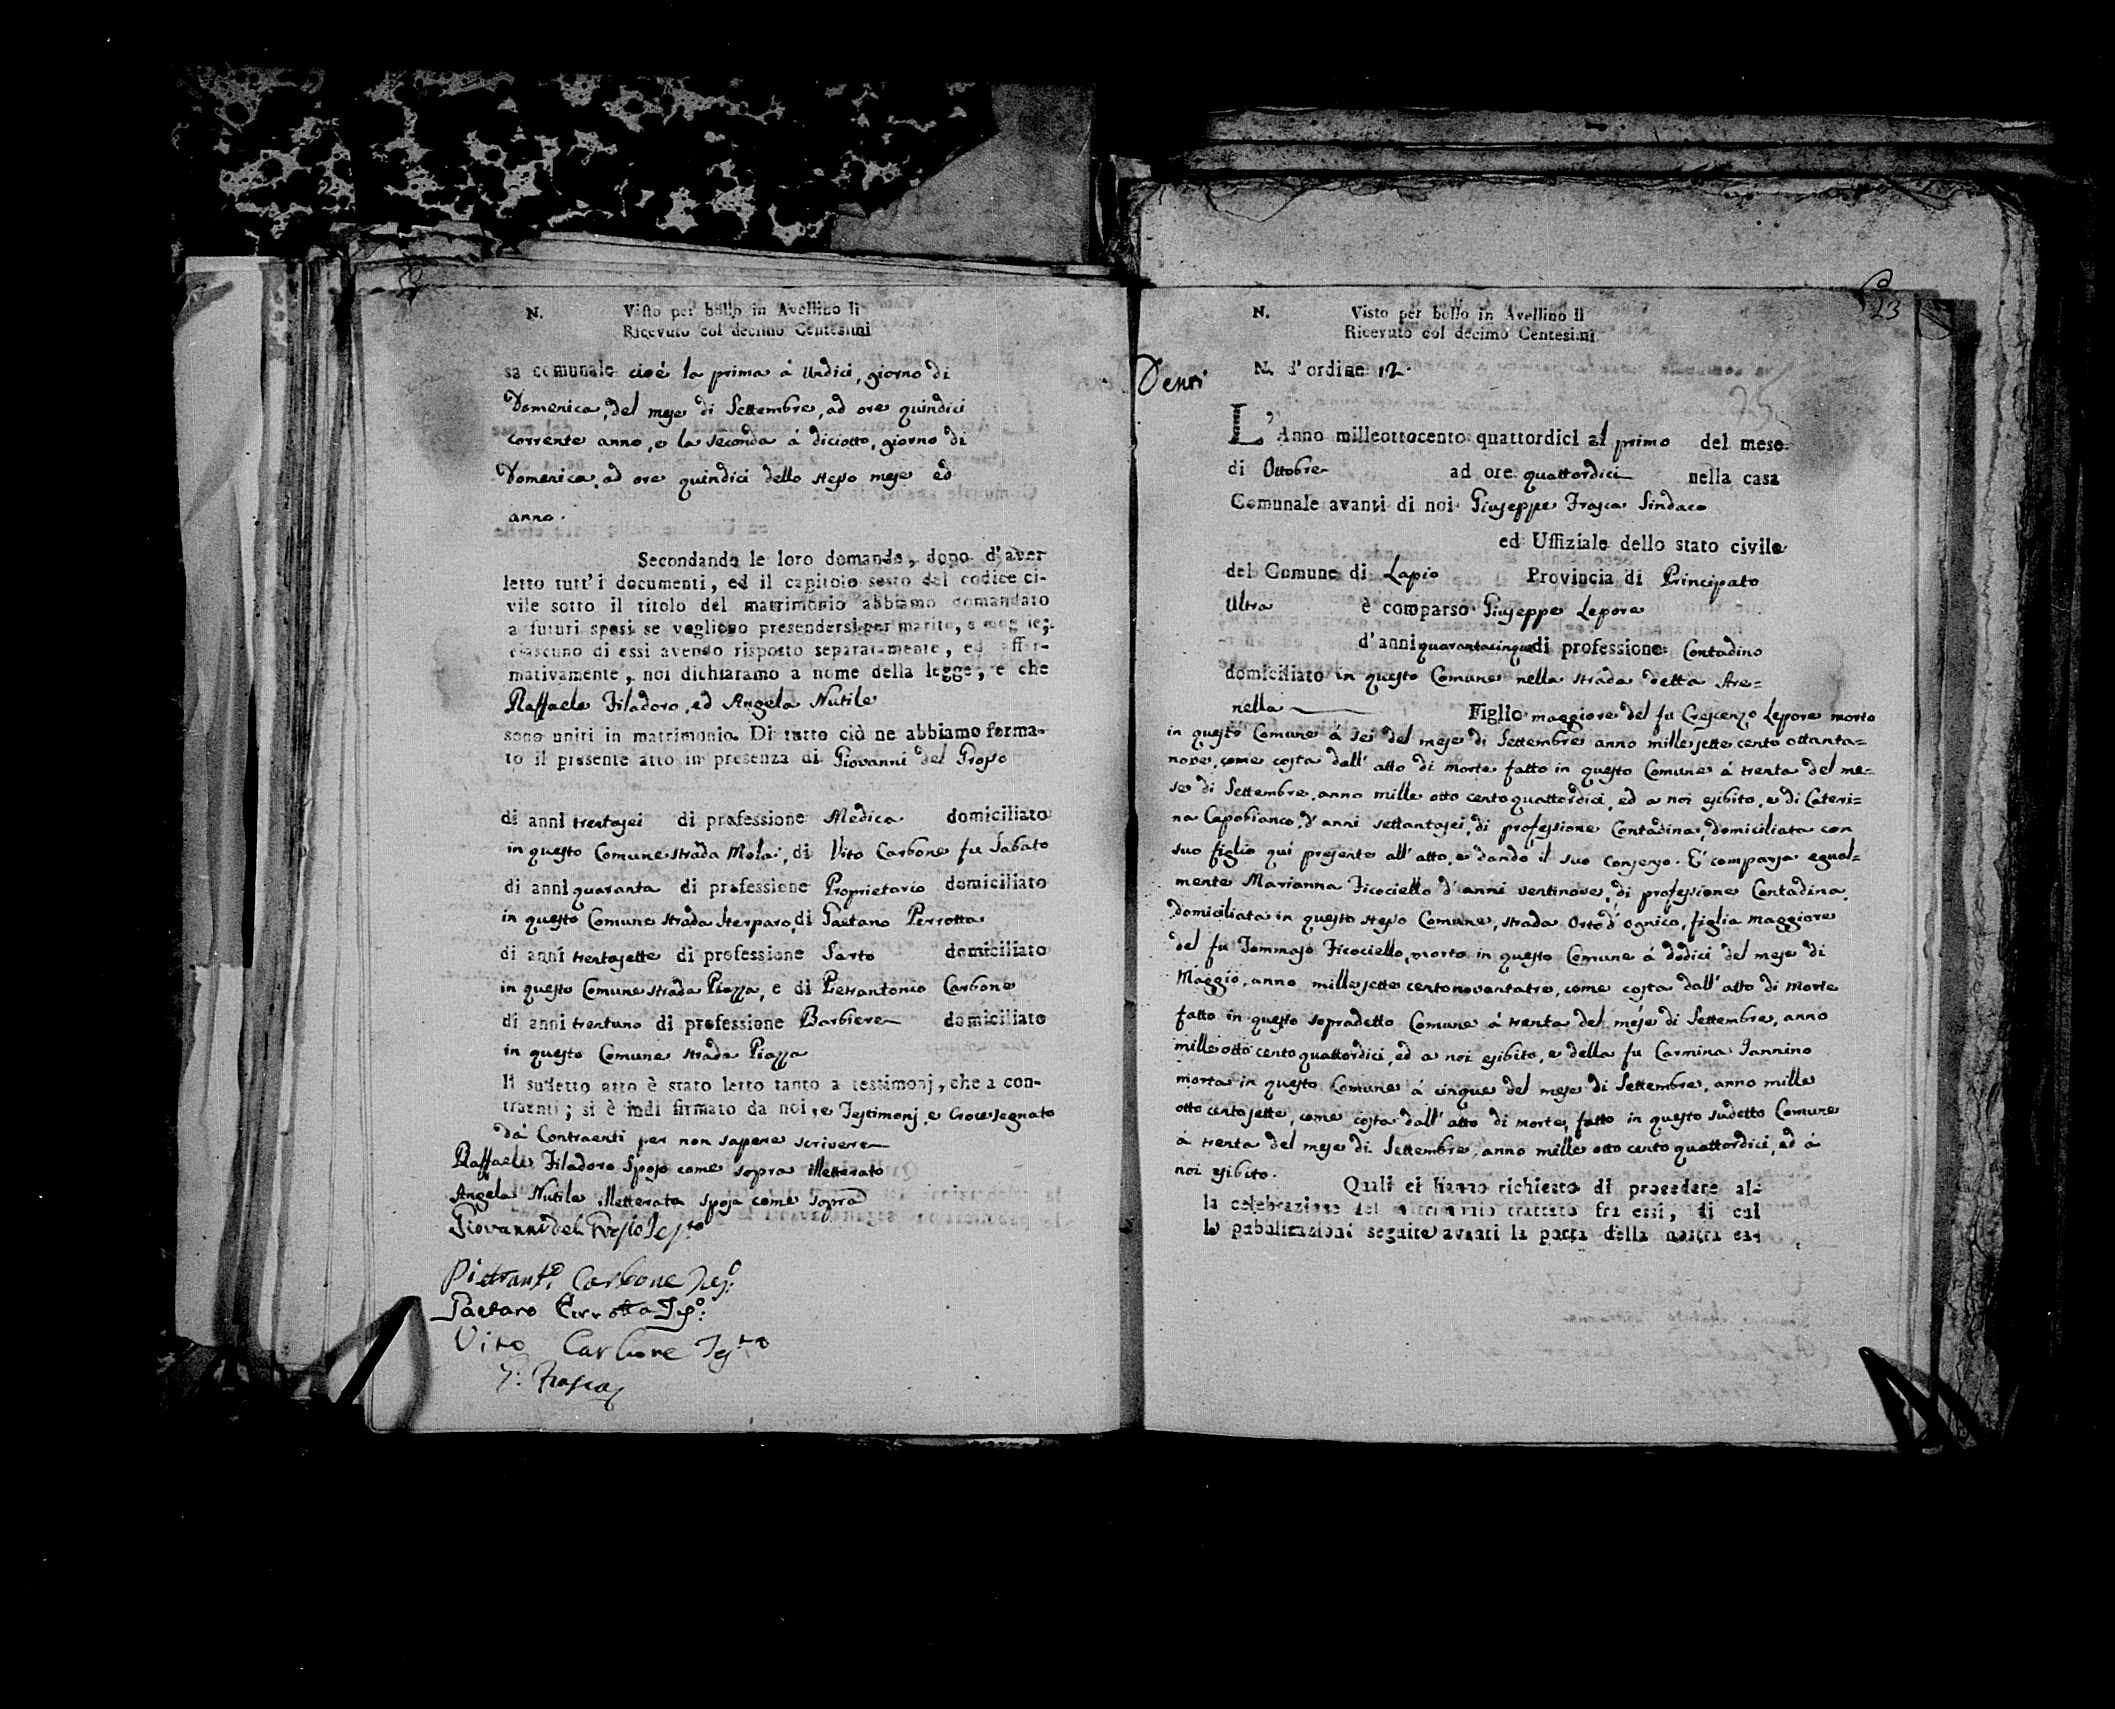 N. Visto per bollo in Avellino li
Ricevuto col decimo Centesimi
sa comunale cioé la prima á Undici, giorno di
Domenica, del mese di Settembre, ad ore quindici
corrente anno, e la seconda á diciotto, giorno di
Domenica, ad ore quindici dello stesso mese ed
anno.
Secondando le loro domande, dopo d'aver
letto tutt'i documenti, ed il capitolo sesto del codice ci-
vile sotto il titolo del matrimonio abbiamo domandato
a futuri sposi se vogliono presendersi per marito, e moglie;
ciascuno di essi avendo risposto separatamente, ed affer-
mativamente, noi dichiaramo a nome della legge, e che
Raffaele Filadoro, ed Angela Nutile
sono uniti in matrimonio. Di tutto ciò ne abbiamo forma-
to il presente atto in presenza di Giovanni del Grosso
di anni trentasei di professione Medica domiciliato
in questo Comune strada Mola, di Vito Carbone fu Sabato
di anni quaranta di professione Proprietario domiciliato
in questo Comune strada Sterparo, di Gaetano Perrotta
di anni trentasette di professione Sarto domiciliato
in questo Comune strada Piazza, e di Pietrantonio Carbone
di anni trentuno di professione Barbiere domiciliato
in questo Comune strada Piazza
Il sudetto atto è stato letto tanto a testimonj, che a con-
traenti; si è indi firmato da noi, e Testimonj, e Crocesegnato
da' Contraenti per non sapere scrivere
Raffaele Filadoro Sposo come sopra illetterato
Angela Nutile illetterata sposa come sopra
Giovanni del Grosso Tes.to
Pietrant.o Carbone Tes.o
Gaetano Perrotta Tes.o
Vito Carbone Tes.to
G: Frasca
23
N. Visto per bollo in Avellino li
Ricevuto col decimo Centesimi
N. d'ordine 12.
L'Anno milleottocento quattordici al primo del mese
di Ottobre ad ore quattordici nella casa
Comunale avanti di noi Giuseppe Frasca Sindaco
ed Uffiziale dello stato civile
del Comune di Lapio Provincia di Principato
Ultra è comparso Giuseppe Lepore
d'anni quarantacinque di professione Contadino
domiciliato in questo Comune nella strada detta Are=
nella Figlio maggiore del fu Crescenzo Lepore morto
in questo Comune á sei del mese di Settembre anno mille sette cento ottanta=
nove, come costa dall' atto di morte fatto in questo Comune á trenta del me=
se di Settembre, anno mille otto cento quattordici, ed a noi esibito, e di Cateri=
na Capobianco, d'anni settantasei, di professione Contadina, domiciliata con
suo figlio quí presente all' atto, e dando il suo consenso. E' comparsa egual=
mente Marianna Ficociello d'anni ventinove, di professione Contadina
domiciliata in questo stesso Comune, strada Orto d'ognico, figlia maggiore
del fu Tommaso Ficociello, morto in questo Comune á dodici del mese di
Maggio, anno mille sette cento novantatre, come costa dall' atto di morte
fatto in questo sopradetto Comune á trenta del mese di Settembre, anno
mille otto cento quattordici, ed a noi esibito, e della fu Carmina Iannino
morta in questo Comune á cinque del mese di Settembre, anno mille
otto cento sette, come costa dall' atto di morte, fatto in questo sudetto Comune
á trenta del mese di Settembre, anno mille otto cento quattordici, ed á
noi esibito.
Quali ci hanno richiesto di procedere al-
la celebrazione del matrimonio trattato fra essi, di cui
le pubblicazioni seguite avanti la porta della nostra ca-